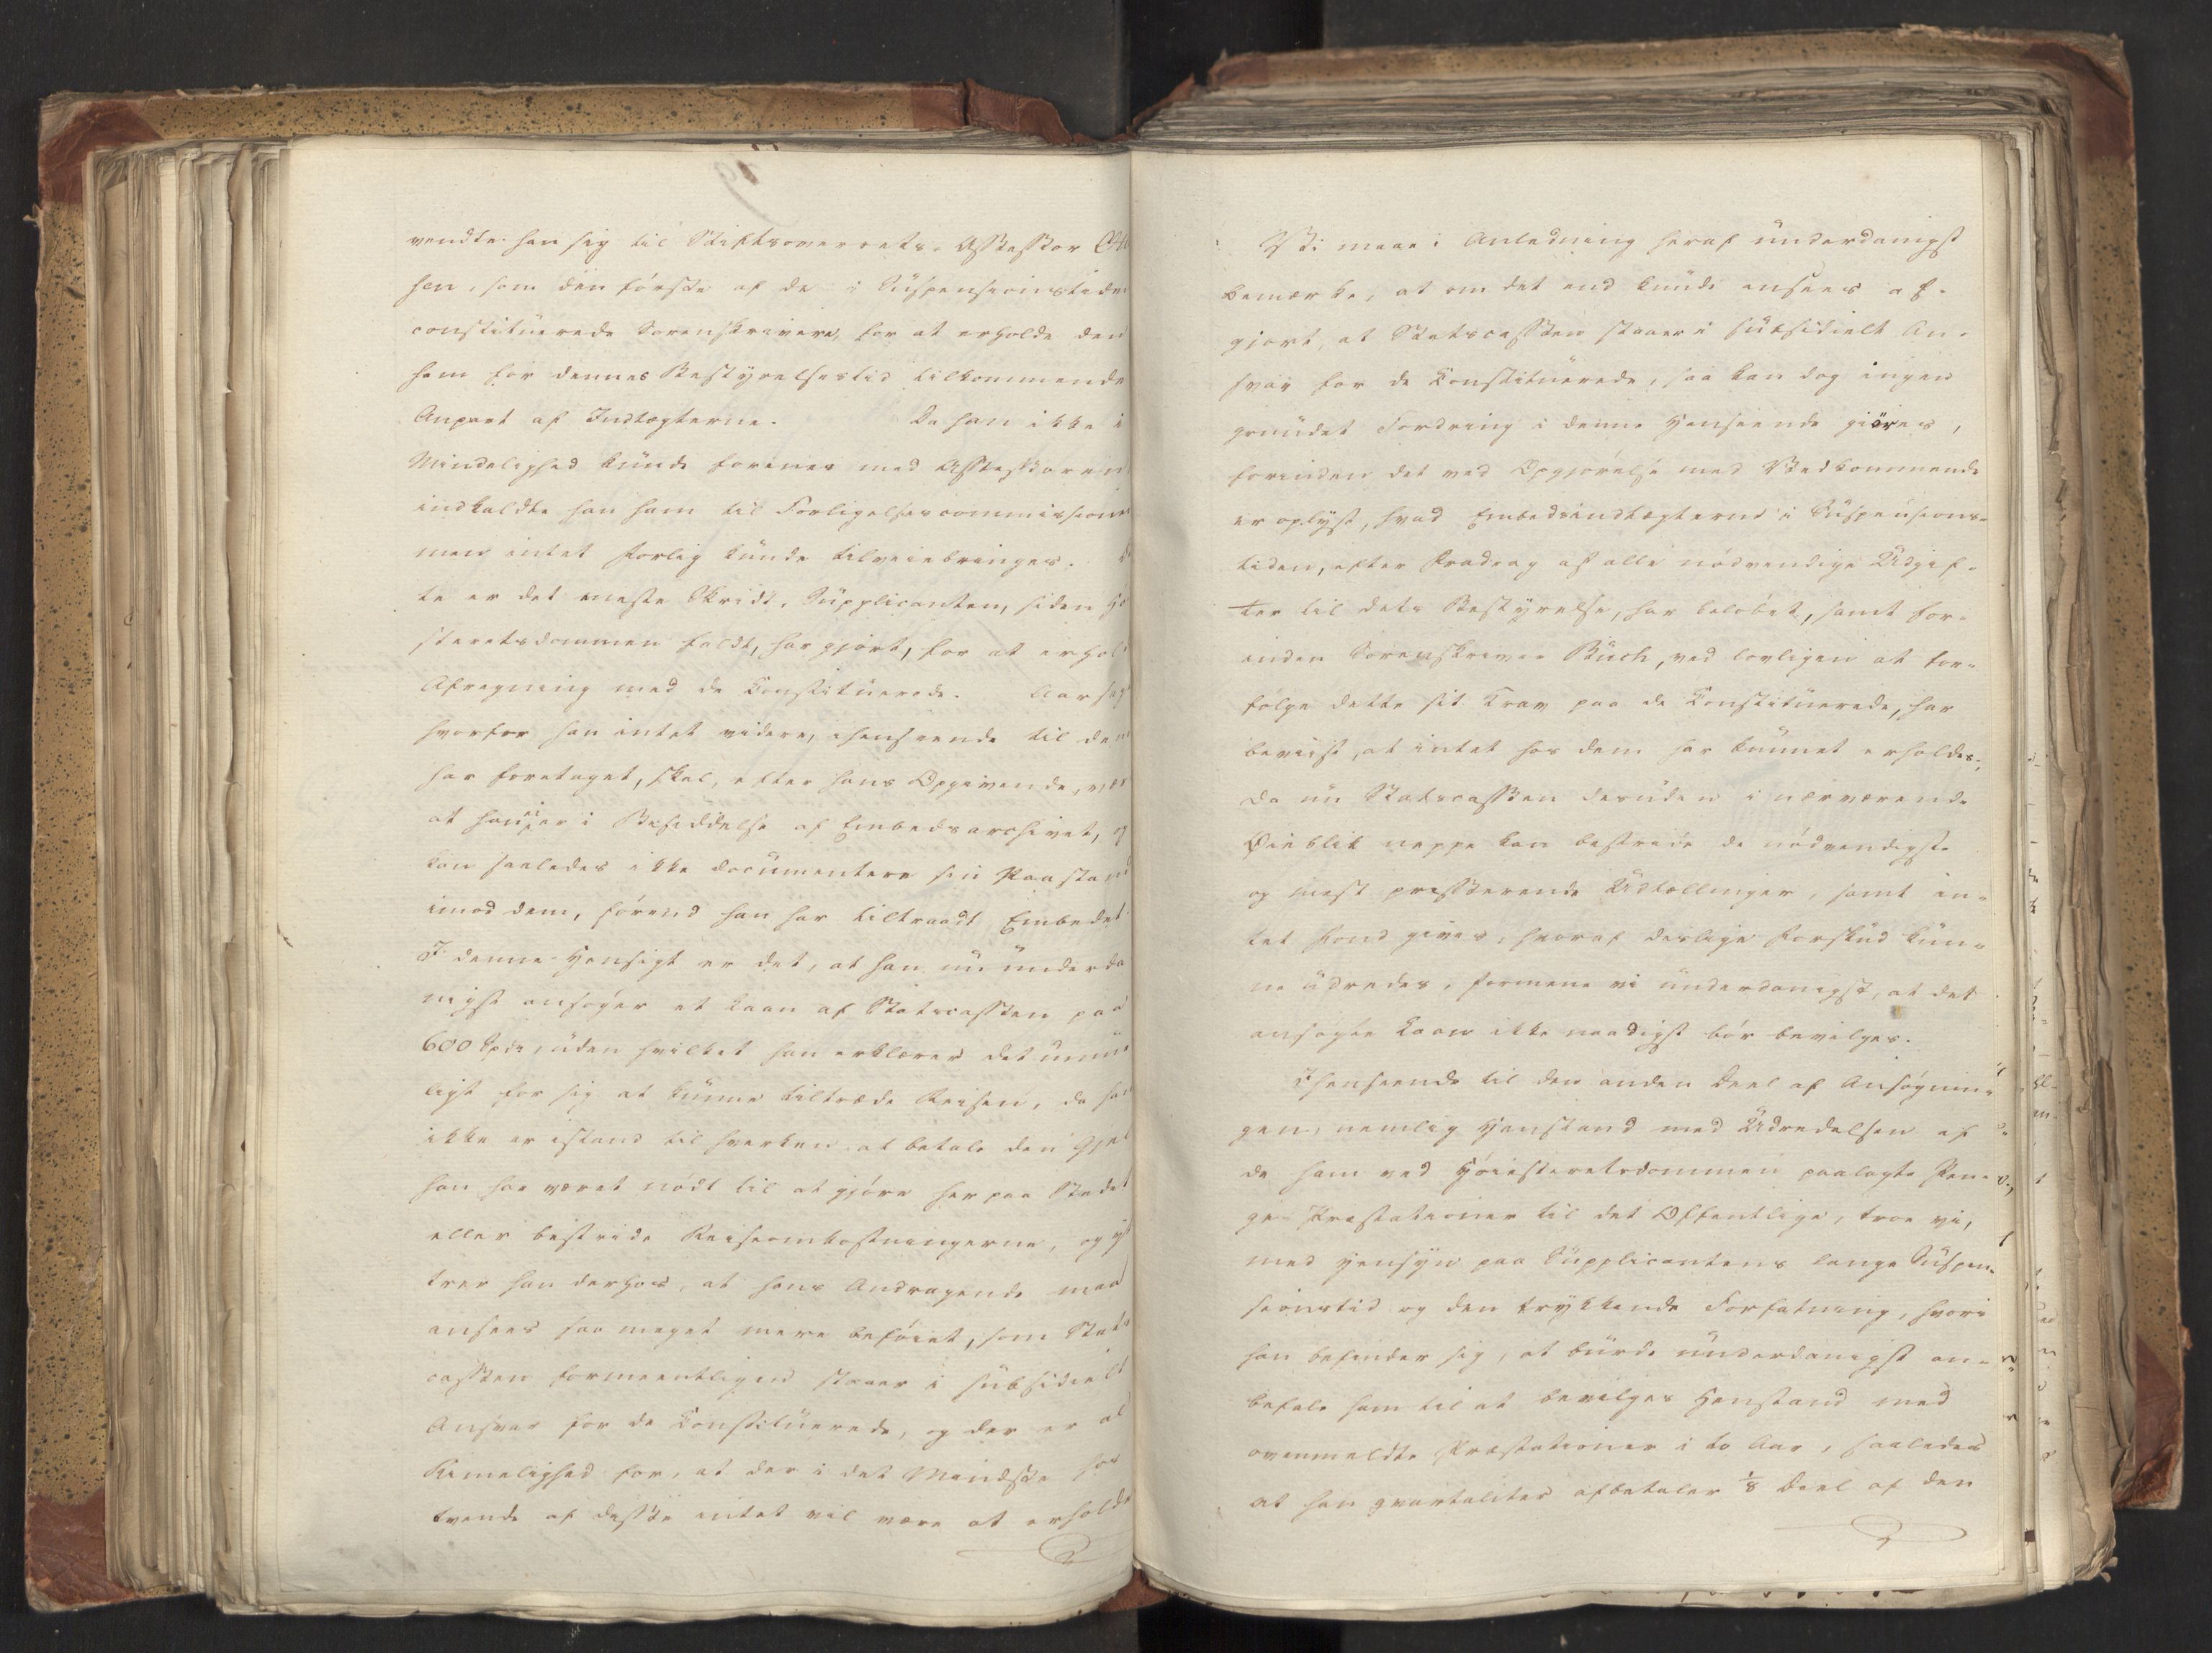 vendte han sig til Stiftsoverrets-Assessor
sen, som den første af de i Suspensionstiden
constituerede Sorenskrivere, for at erholde den
ham for dennes Bestyrelsestid tilkommende
Anpart af Indtægterne. Da han ikke i
Mindelighed kunde forenes med Assessoren
indkaldte han ham til Forligelsescommissionen
men intet Forlig kunde tilveiebringes.
te er det eneste Skridt, Supplicanten, siden Hø
iesteretsdommen faldt, har gjort, for at erhol
Afregning med de Constituerede. Aarsag
hvorfor han intet videre, ihenseende til dem
har foretaget, skal, efter hans Opgivende, vær
at han ei er i Besiddelse af Embedsarchivet, og
kan saaledes ikke documentere sin Paastand
imod dem, førend han har tiltraadt Embedet.
I denne Hensigt er det, at han nu underda
nigst ansøger et Laan af Statscassen paa
600 Spd, uden hvilket han erklærer det umu
ligt for sig at kunne tiltræde Reisen, da han
ikke er istand til hverken at betale den Gjel
han har været nødt til at gjøre her paa Stedet
eller bestride Reiseomkostningerne, og yt
trer han derhos, at hans Andragende maa
ansees saa meget mere beføiet, som Stats
cassen formeentligen staaer i subsidielt
Ansvar for de Constituerede, og der er al
Rimelighed for, at der i det Mindste hos
tvende af disse intet vil være at erholde
Vi maae i Anledning heraf underdanigst
bemærke, at om det end kunde ansees af-
gjort, at Statscassen staaer i subsidielt An-
svar for de Constituerede, saa kan dog ingen
grundet Fordring i denne Henseende giøres,
forinden det ved Opgjørelse med Vedkommende
er oplyst, hvad Embedsindtægterne i Suspensions-
tiden, efter Fradrag af alle nødvendige Udgif-
ter til dets Bestyrelse, har beløbet, samt for-
inden Sorenskriver Buch, ved lovligen at for-
følge dette sit Krav paa de Constituerede, har
beviist, at intet hos dem har kunnet erholdes.
Da nu Statscassen desuden i nærværende
Øieblik neppe kan bestride de nødvendigste
og mest presserende Udtællinger, samt in-
tet Fond gives, hvoraf deslige Forskud kun-
ne udredes, formene vi underdanigst, at det
ansøgte Laan ikke naadigst bør bevilges.
Ihenseende til den anden Deel af Ansøgnin-
gen, nemlig Henstand med Udredelsen af
de ham ved Høiesteretsdommen paalagte Pen-
ge-Præstationer til det Offentlige, troe vi,
med Hensyn paa Supplicantens lange Suspen-
sionstid og den trykkende Forfatning, hvori
han befinder sig, at burde underdanigst an-
befale ham til at bevilges Henstand med
ovenmeldte Præstationer i to Aar, saaledes
at han qvartaliter afbetaler 1/8 Deel af den